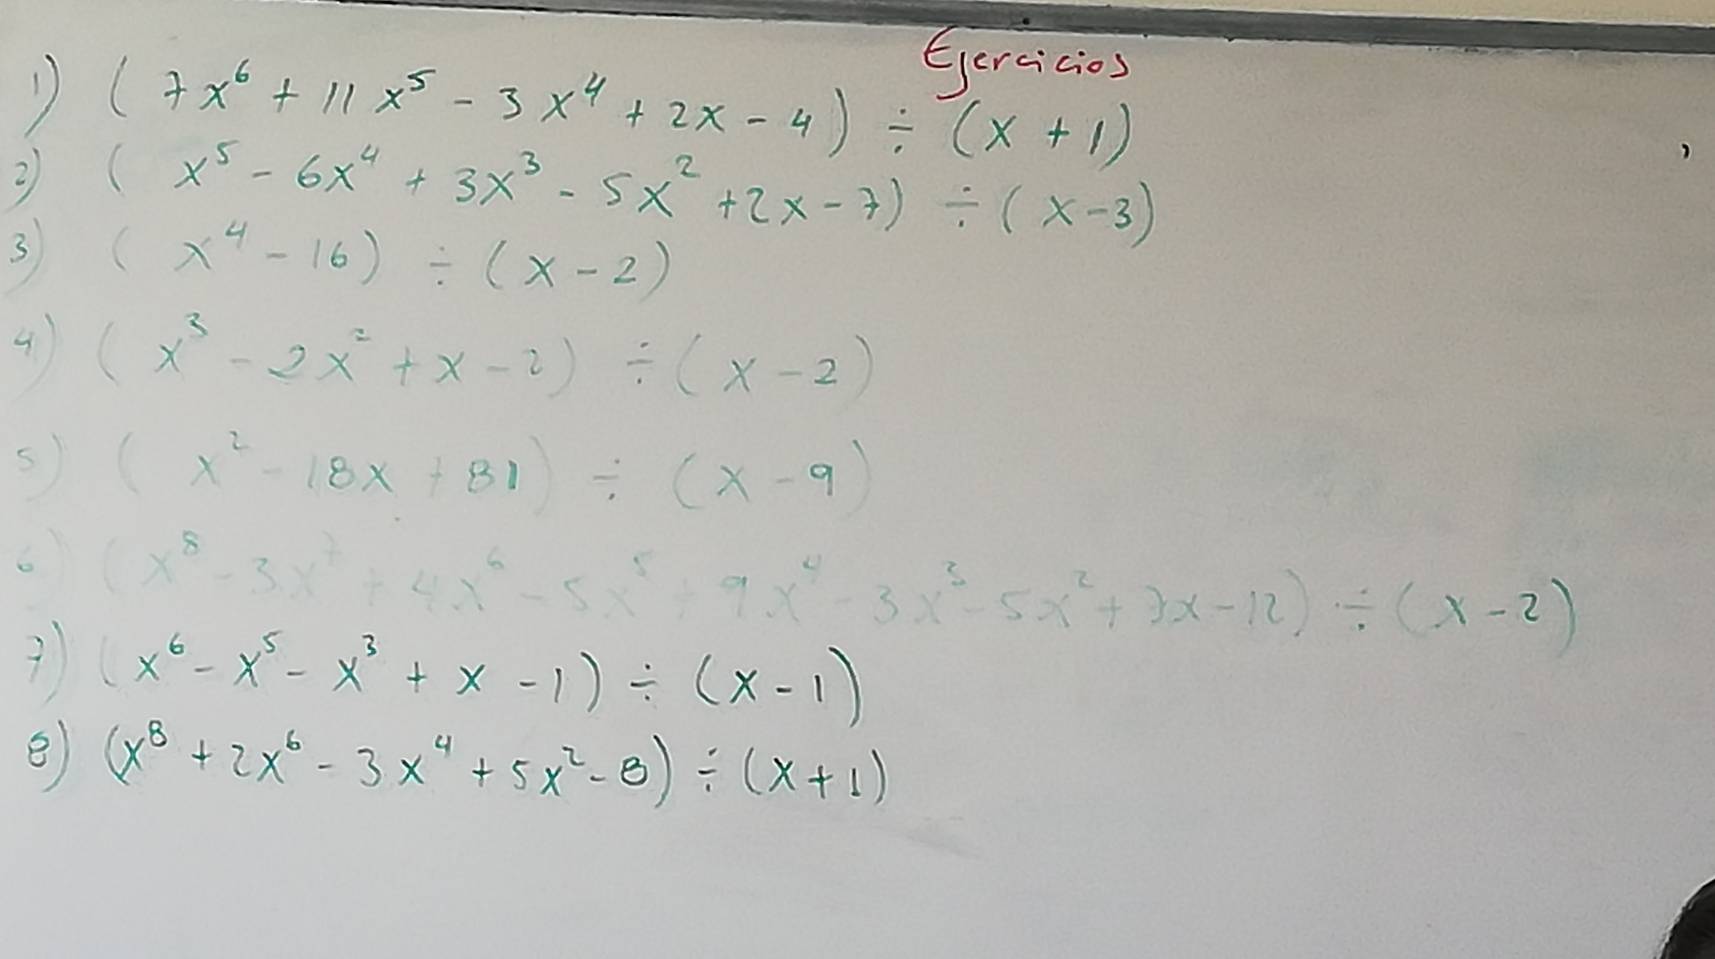 Ejercicios
1) (7x⁶ + 11x⁵ - 3x⁴ + 2x - 4) ÷ (x + 1)
2) (x⁵ - 6x⁴ + 3x³ - 5x² + 2x - 7) ÷ (x - 3)
3) (x⁴ - 16) ÷ (x - 2)
4) (x³ - 2x² + x - 2) ÷ (x - 2)
5) (x² - 18x + 81) ÷ (x - 9)
6) (x⁸ - 3x⁷ + 4x⁶ - 5x⁵ + 9x⁴ - 3x³ - 5x² + 7x - 12) ÷ (x - 2)
7) (x⁶ - x⁵ - x³ + x - 1) ÷ (x - 1)
8) (x⁸ + 2x⁶ - 3x⁴ + 5x² - 8) ÷ (x + 1)